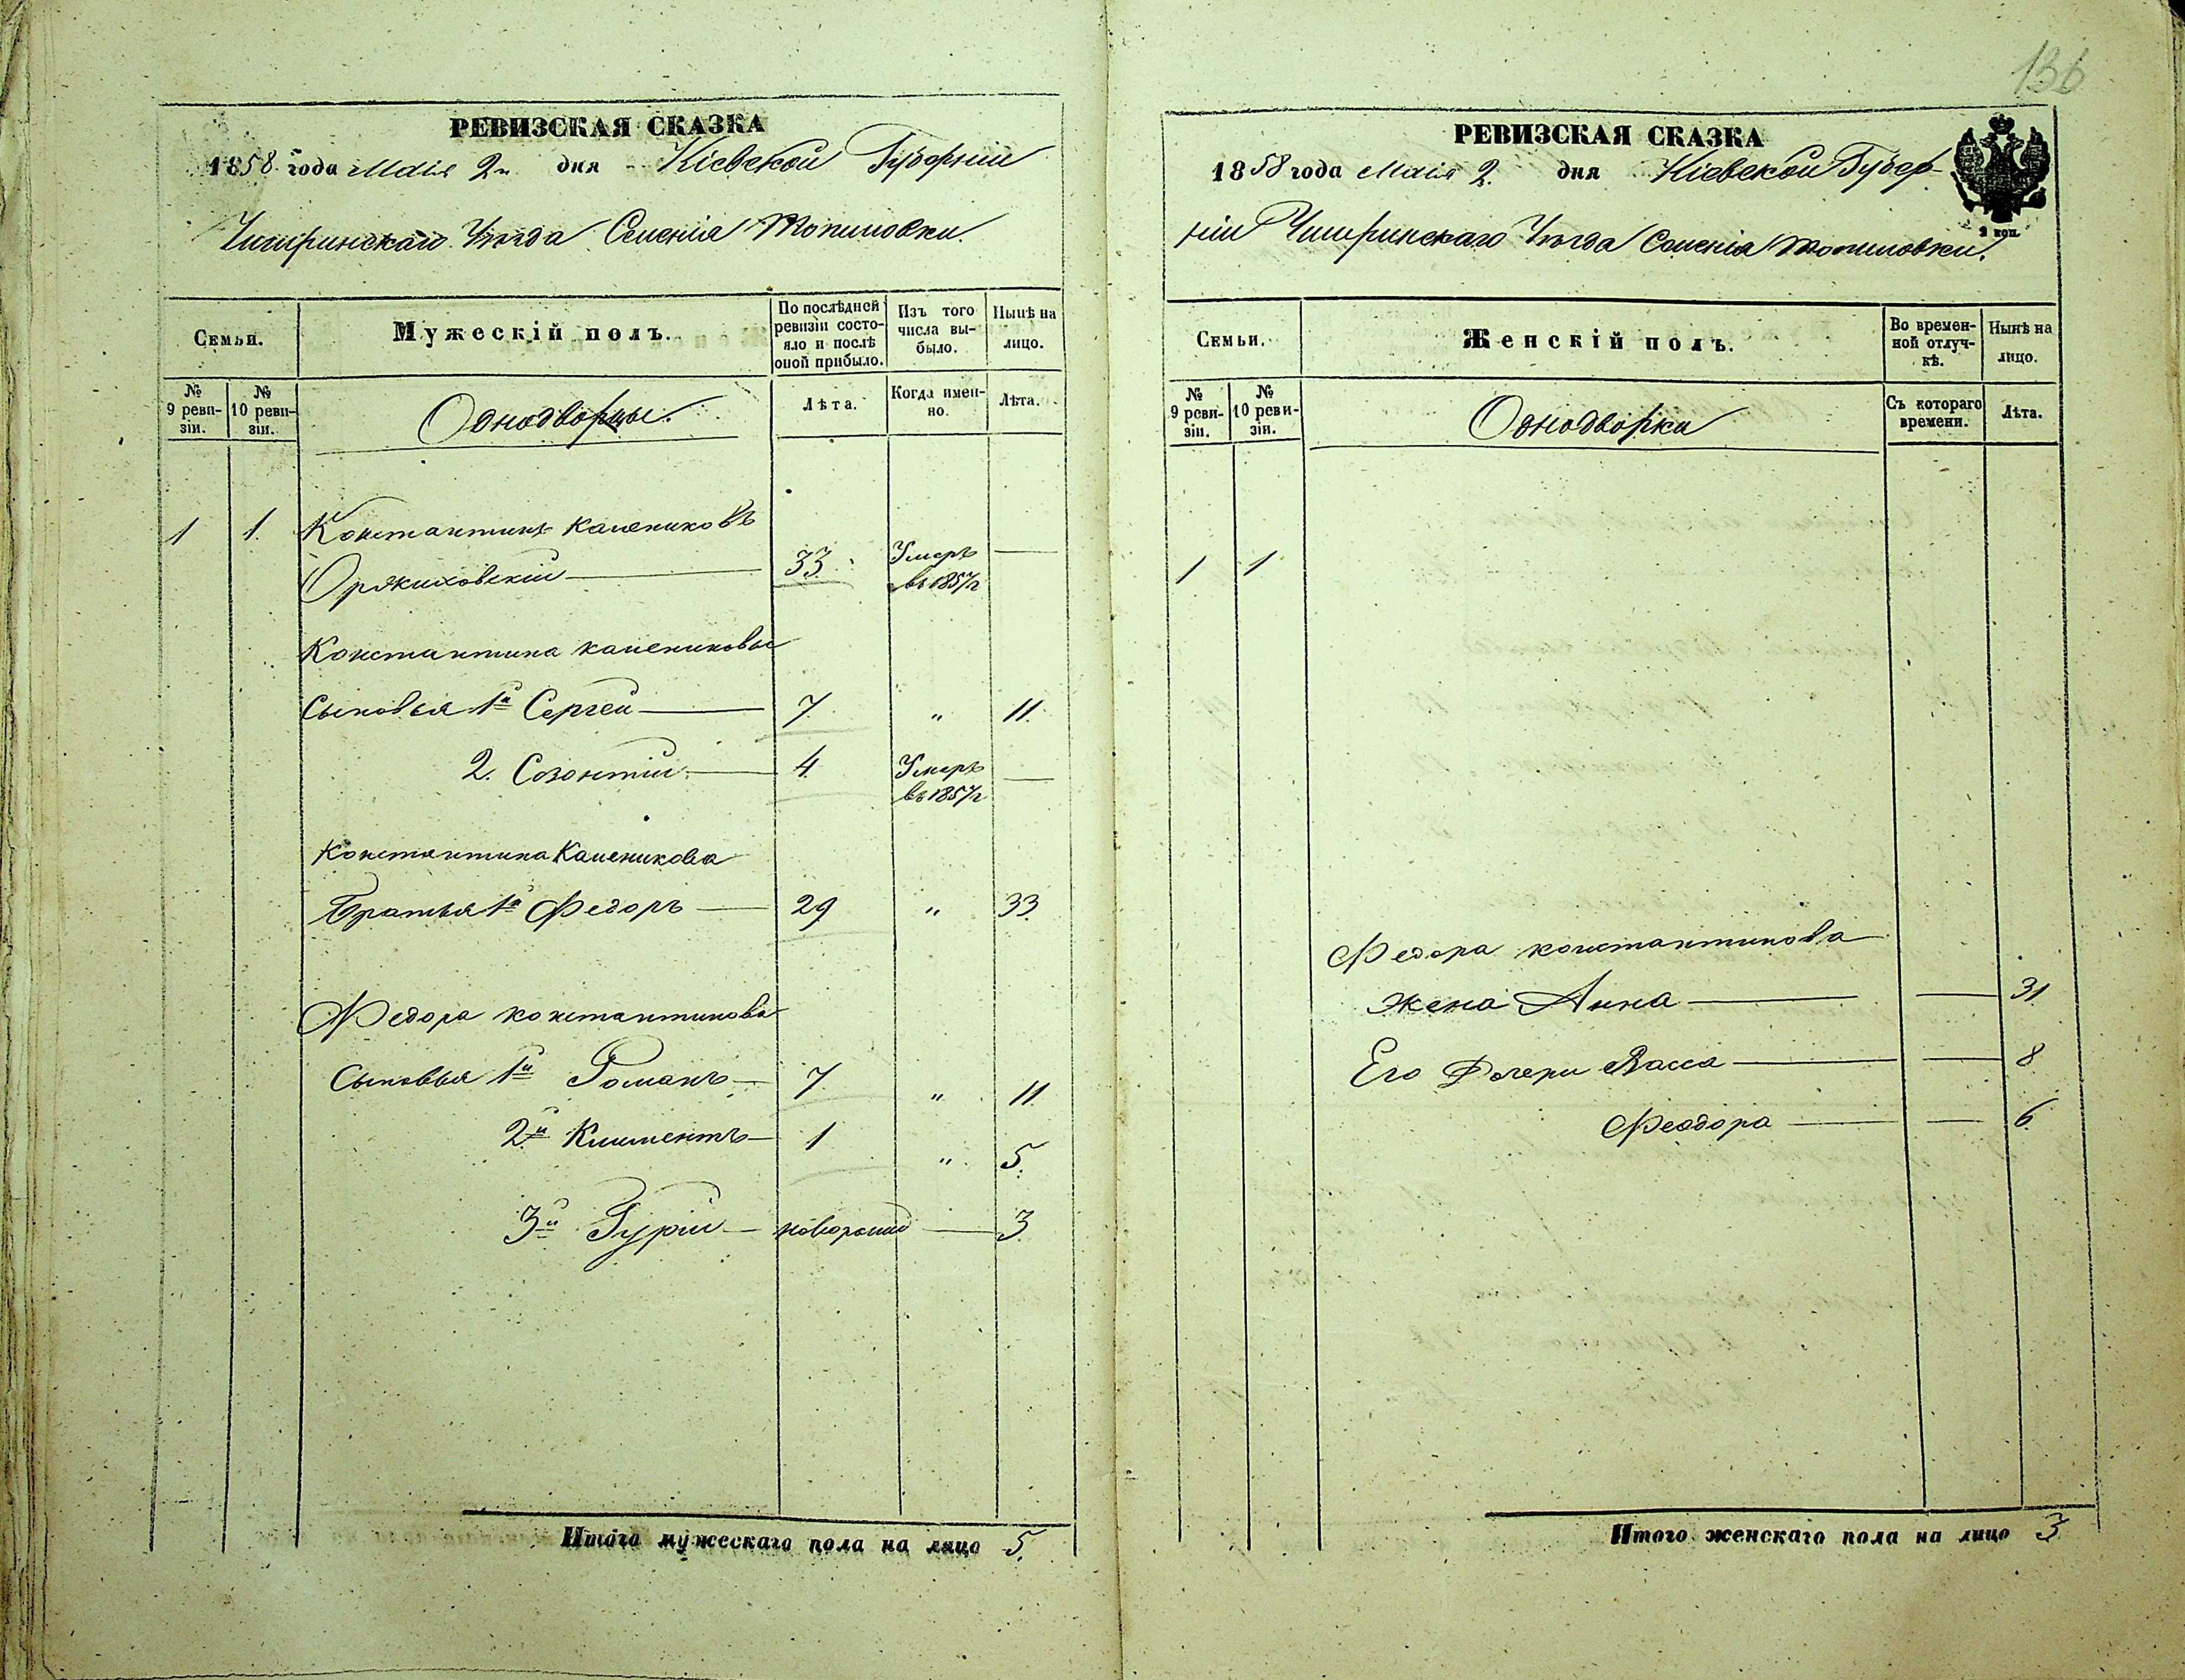 136
РЕВИЗСКАЯ СКАЗКА
1858 года Маія 2 дня Кіевской Губерніи
Чигиринскаго Уѣзда Селенія Топиловки.
Семьи.
Мужескій полъ.
По послѣдней ревизіи состояло и послѣ оной прибыло.
Изъ того числа выбыло.
Нынѣ на лицо.
№ 9 ревизіи.
№ 10 ревизіи.
Однодворцы.
Лѣта.
Когда именно.
Лѣта.
1 1. Константинъ Калениковъ
Оржиховскій 33 Умеръ въ 1857 г
Константина Калениковы
Сыновья 1й Сергей 7 " 11.
2. Созонтій 4 Умеръ въ 1857 г
Константина Каленикова
Братья 1й Федоръ 29 " 33
Федора Константинова
Сыновья 1й Романъ 7 " 11
2й Климентъ 1 " 5.
3й Гурій 3
Итого мужескаго пола на лицо 5.
РЕВИЗСКАЯ СКАЗКА
1858 года Маія 2. дня Кіевской Губер-
ніи Чигиринскаго Уѣзда Селенія Топиловки.
2 коп.
Семьи.
Женскій полъ.
Во временной отлучкѣ.
Нынѣ на лицо.
№ 9 ревизіи.
№ 10 ревизіи.
Однодворки
Съ котораго времени.
Лѣта.
1 1
Федора Константинова
жена Анна 31.
Его Дочери Васса 8
Феодора 6.
Итого женскаго пола на лицо 3